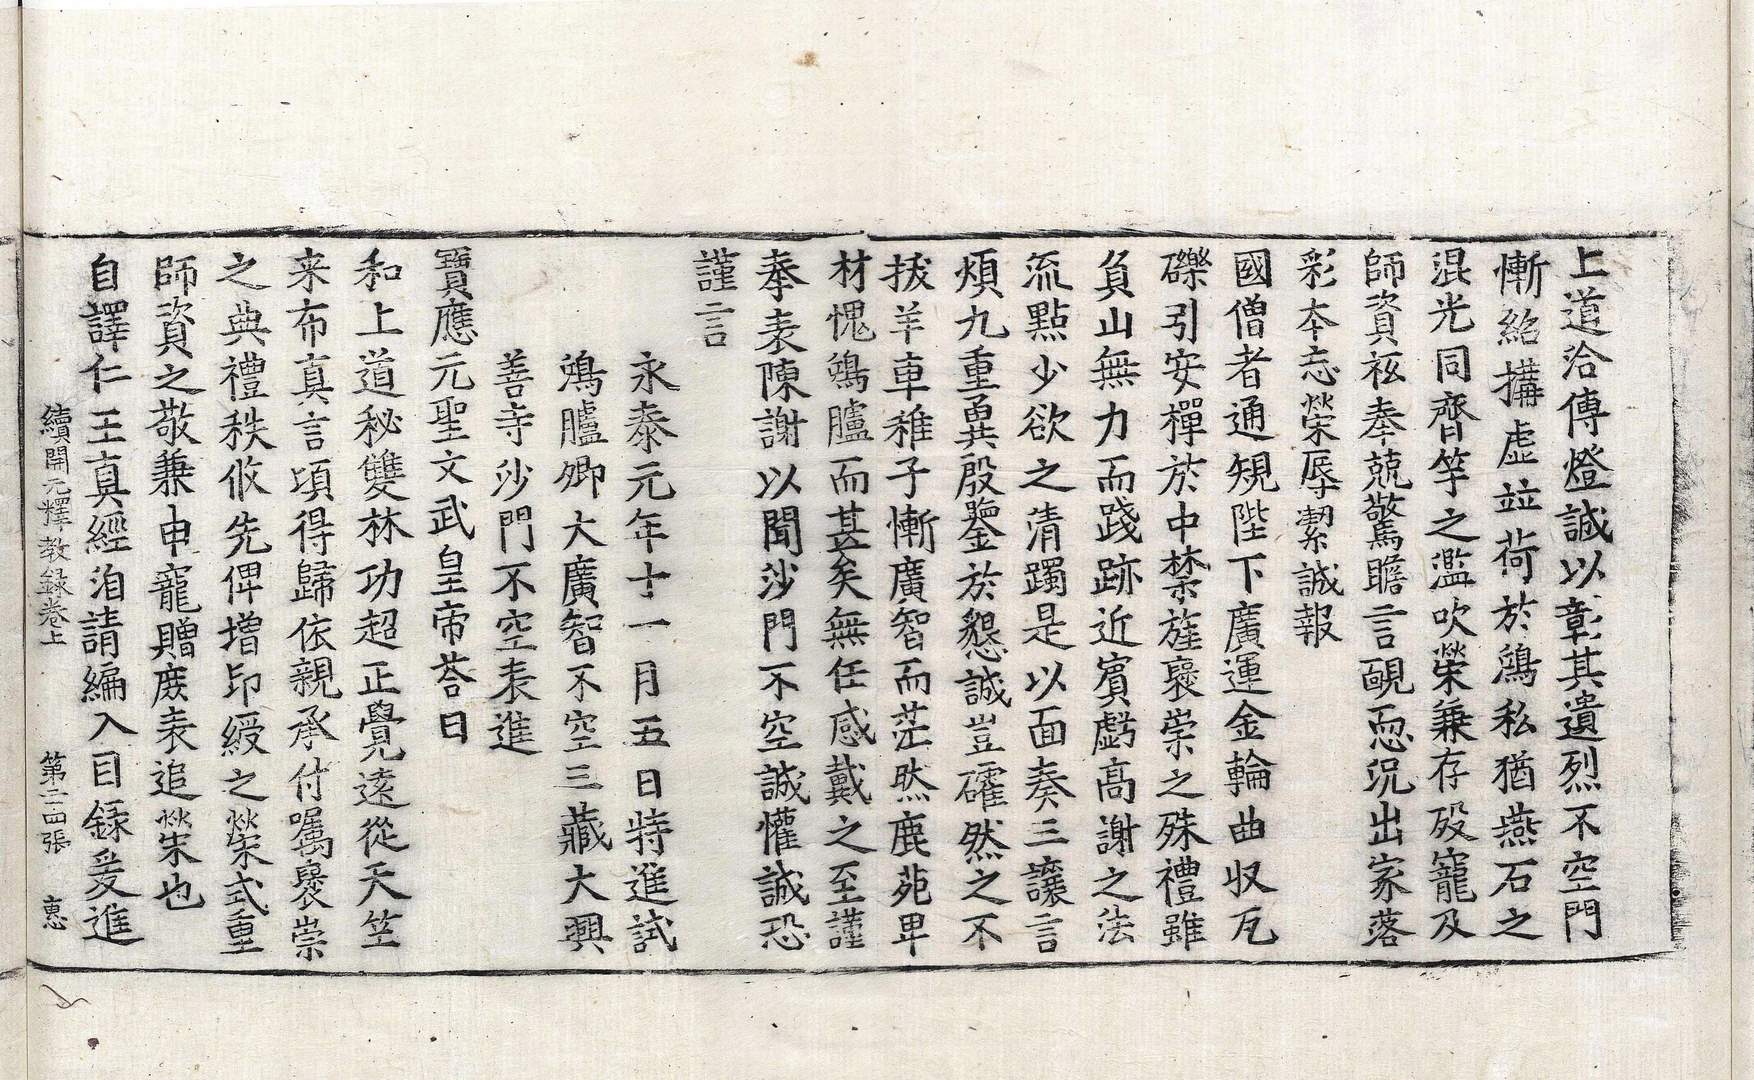 上道洽傳燈誠以彰其遺烈不空門
慚紹搆虛竝荷於鴻私猶燕石之
混光同齊竽之濫吹榮兼存歿寵及
師資祇奉兢驚瞻言靦恧況出家落
彩本忘榮辱潔誠報
國僧者通規陛下廣運金輪曲収瓦
礫引安禪於中禁旌褒崇之殊禮雖
負山無力而踐跡近賓戱高謝之法
流點少欲之清躅是以面奏三讓言
煩九重冀殷鑒於懇誠豈確然之不
拔羊車稚子慚廣智而茫然鹿苑卑
材愧鴻臚而甚矣無任感戴之至謹
奉表陳謝以聞沙門不空誠懽誠恐
謹言
永泰元年十一月五日特進試
鴻臚卿大廣智不空三藏大興
善寺沙門不空表進
寶應元聖文武皇帝荅曰
和上道秘雙林功超正覺遠從天竺
来布真言頃得歸依親承付囑褒崇
之典禮秩攸先俾增印綬之榮式重
師資之敬兼申寵贈庻表追榮也
自譯仁王真經洎請編入目録爰進
續開元釋教録卷上 第二四張 惠